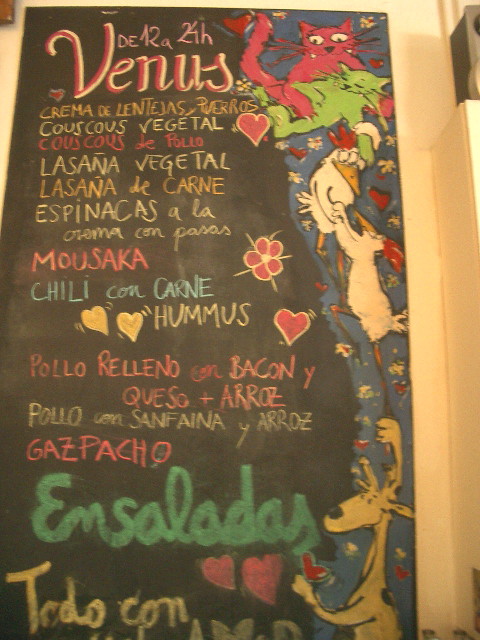 DE 12 a 24h
Venus
CREMA DE LENTEJAS y PUERROS
COUSCOUS VEGETAL
COUSCOUS de POLLO
LASAÑA VEGETAL
LASAÑA de CARNE
ESPINACAS a la
crema con pasas
MOUSAKA
CHILI con CARNE
HUMMUS
POLLO RELLENO con BACON y
QUESO + ARROZ
POLLO con SANFAINA y ARROZ
GAZPACHO
Ensaladas
Todo con